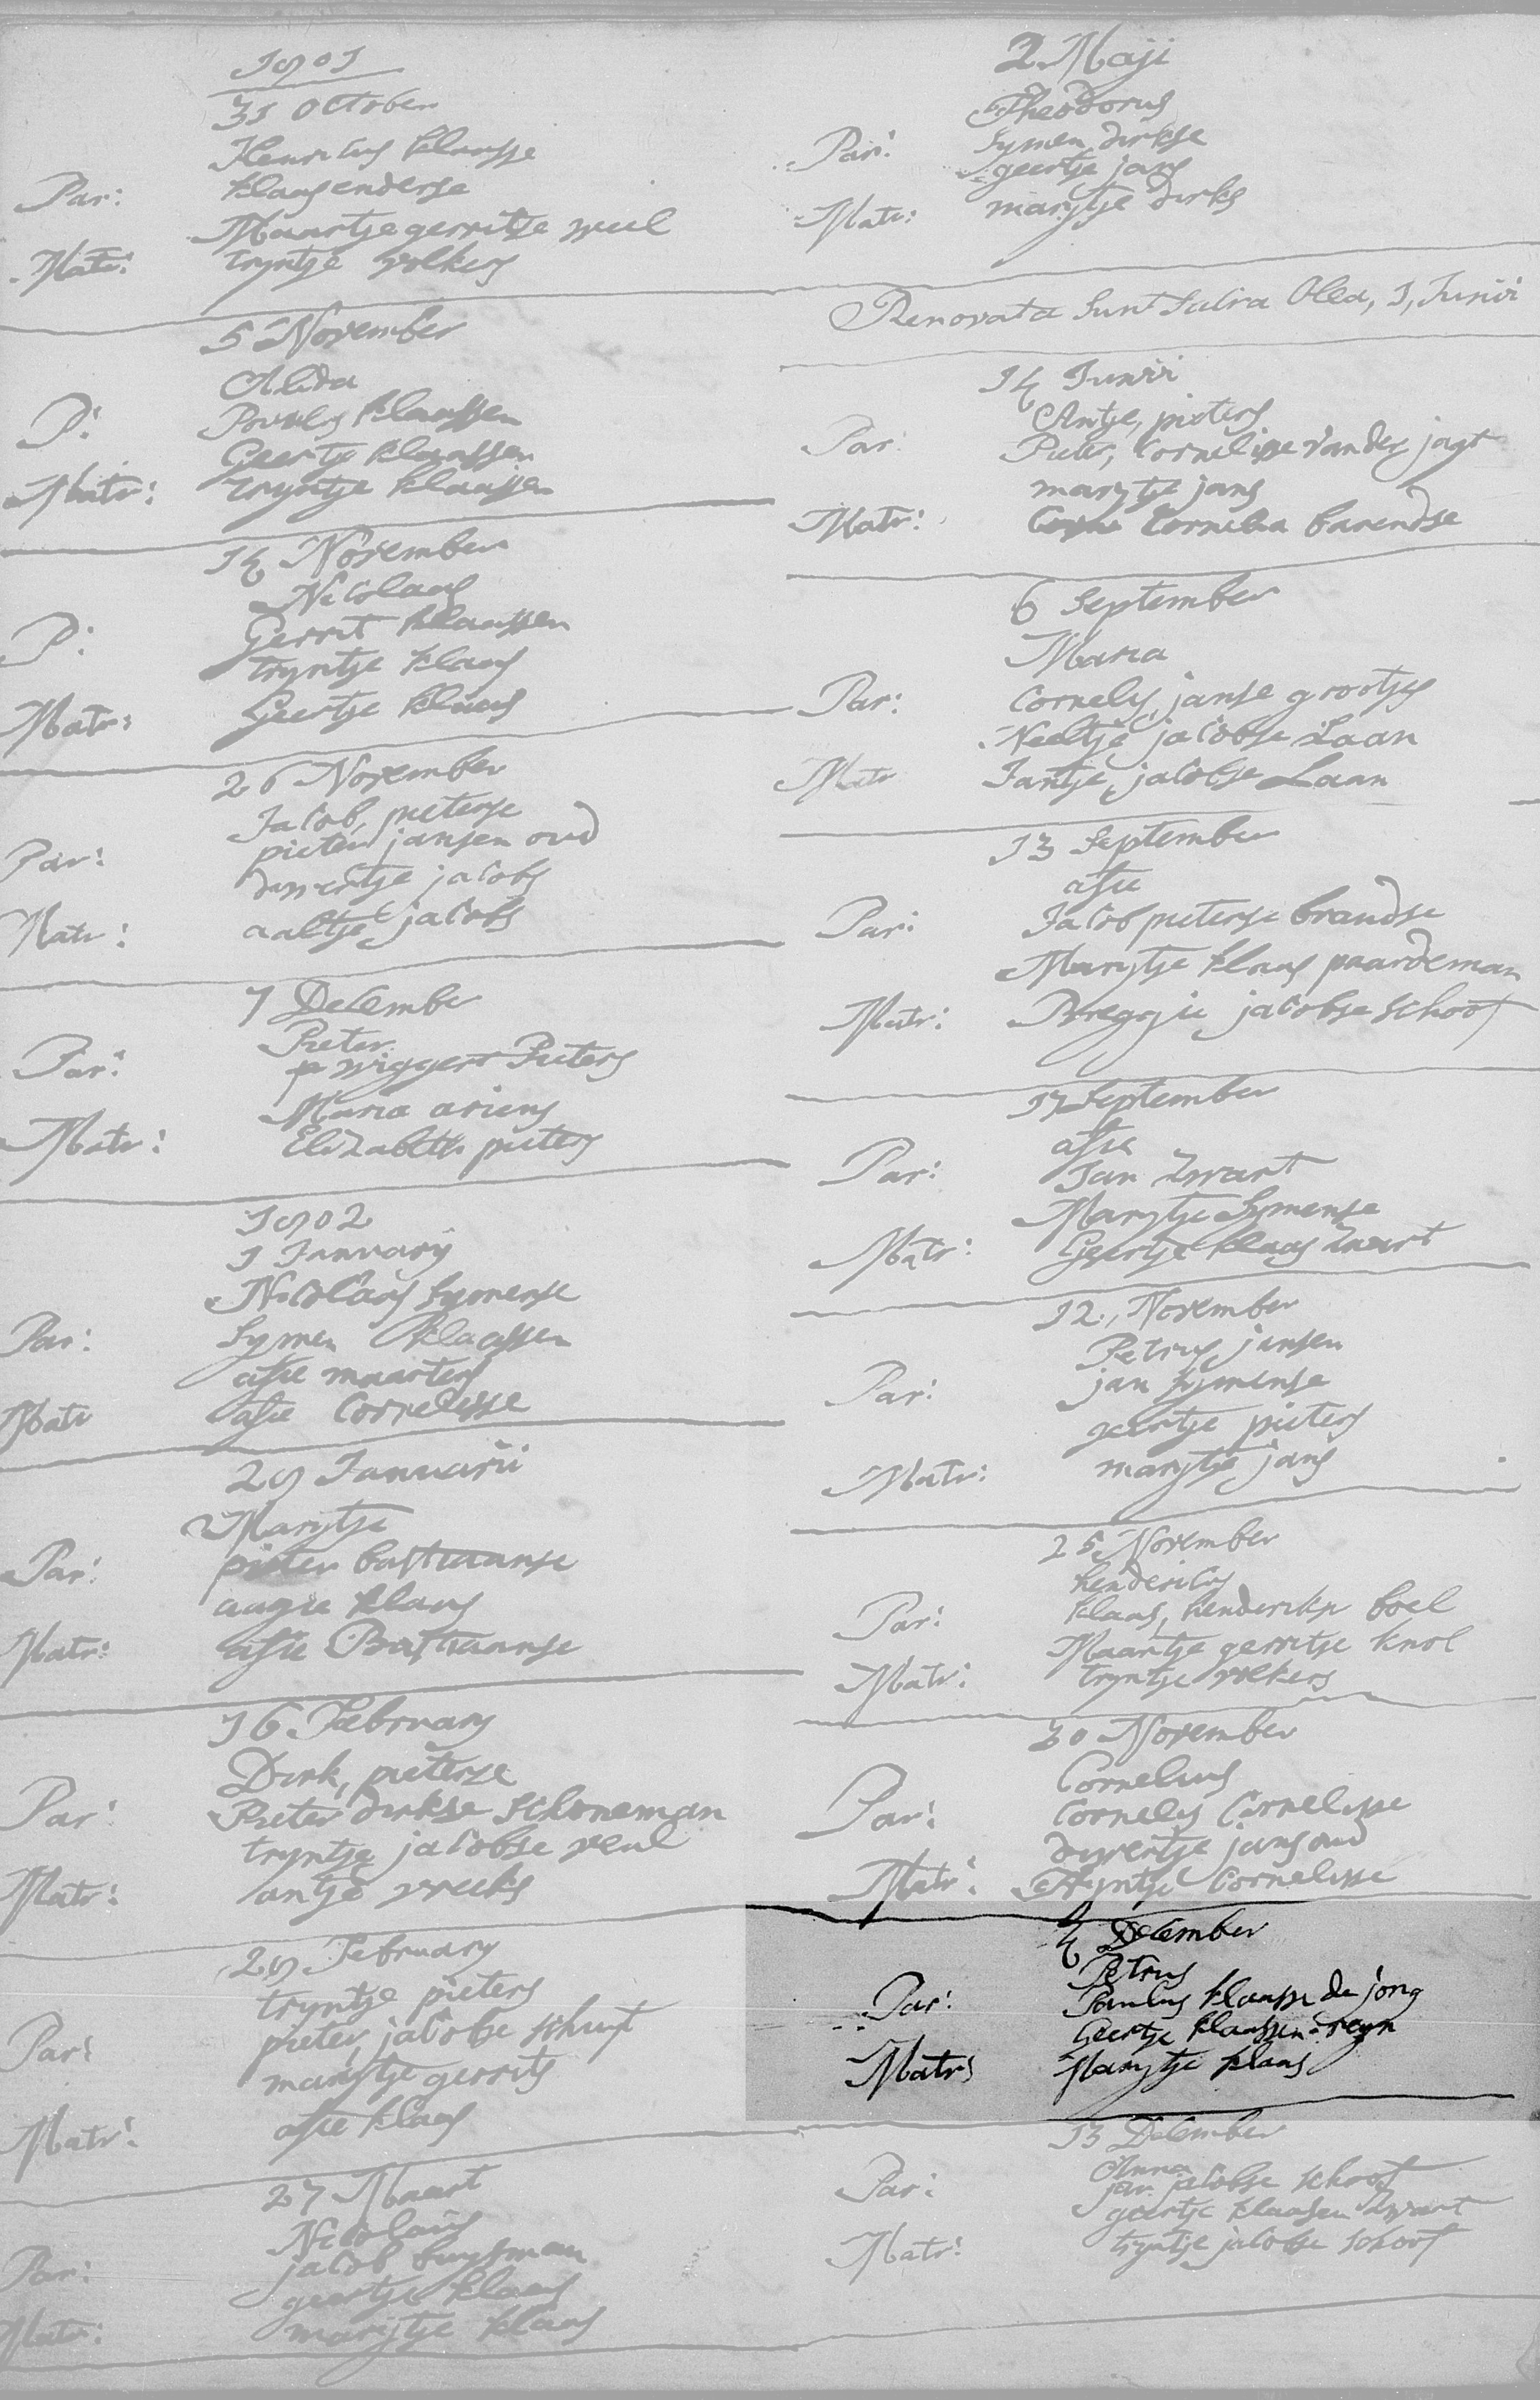 1701
31 October
Henricus klaasse
Par: klaas enderse
Maartje gerritse weel
Matr: tryntje volkers
5 November
Alida
P: Poulus klaassen
Geertje klaassen
Matr: tryntje klaassen
14 November
Nicolaas
P: Gerrit klaassen
tryntje klaas
Matr: Geertje klaas
26 November
Jacob, pieterse
Par: pieter jansen oud
duwertje jacobs
Matr: aaltje jacobs
7 December
Pieter
Par: wiggert Pieters
Maria ariens
Matr: Elizabeth pieters
1702
1 January
Nicolaas Symense
Par: Symen klaassen
afie maarters
Matr afie Cornelisse
29 Januarii
Marytje
Par: pieter bastiaanse
aagie klaas
Matr: afie Bastiaanse
16 February
Dirk, pieterse
Par: Pieter dirkse Schoneman
tryntje jacobse veul
Matr: antje vreeks
29 February
tryntje pieters
Par: pieter, jacobse schuyt
marytje gerrits
Matr: afie klaas
27 Maart
Nicolaus
Par: jacob buysman
geertje klaas
Matr: marytje klaas
2 Maji
Theodorus
Par: Symen dirkse
geertje jans
Matr: marytje dirks
Renovata sunt Sacra Olea, 1, Junii
14 Junii
Antje, pieters
Par: Pieter, Cornelisse vander jagt
marytje jans
Matr: Cornelia barendse
6 September
Maria
Par: Cornelis, janse grootjes
Neeltje jacobse Laan
Matr Jantje, jacobse Laan
13 September
afie
Par: Jacob pieterse brandse
Marytje klaas paardeman
Matr: Breggie jacobse schoof
17 September
afie
Par: Jan Zwart
Marytje Symense
Matr: Geertje klaas Zwart
12, November
Petrus jansen
Par: jan symense
geertje pieters
Matr: marytje jans
25 November
hendericus
Par: klaas, henderikse boel
Maartje gerritse knol
Matr: tryntje volkers
30 November
Cornelius
Par: Cornelis Cornelisse
duwertje jans oud
Matr: Tryntje Cornelisse
4 December
Petrus
Par: Paulus klaasse de jong
Geertje klaassen reyn
Matr: Marytje klaas
13 December
Anna
Par: jan jacobse schoof
geertje klaasen Zwart
Matr: tryntje jacobse schoof